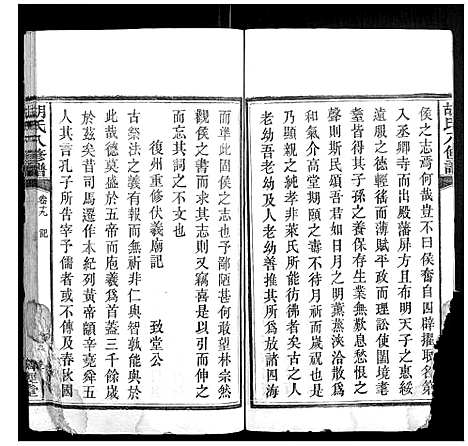 胡氏八修譜
侯之志焉何哉豈不曰侯奮自四辟擢取名第
入丞卿寺而出殿藩屏方且布明天子之惠憑
遠服之德輕徭而薄賦平政而理訟使闔境耄
耋皆得其孫子之養保存生業無歎息愁恨之
聲則斯民頌吾君如日月之明薰蒸浹洽散為
和氣介高堂期頤之壽可以戲綵于鈴齋之間
乃顯親之純孝非萊氏所能彷彿者而其所為
老幼吾老幼及人老幼善善無窮可以放諸四海
而準此固侯之志也予鄙陋甚何敢望林宗然
觀侯之書而求其志則又竊喜是以引而伸之
不辭詞之不文也
復州重修伏羲廟記
致堂公
古祭法之義有報而無祈非仁與智孰能與於
此哉德莫盛於五帝而庖羲為首蓋三千餘歲
於茲矣昔司馬遷作本紀列黃帝顓辛堯舜五
人其言孔子所告宰予儒者或不傳及春秋國
胡氏八修譜
卷十九
記